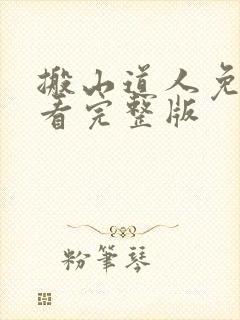 搬山道人免
看完整版
粉筆琴